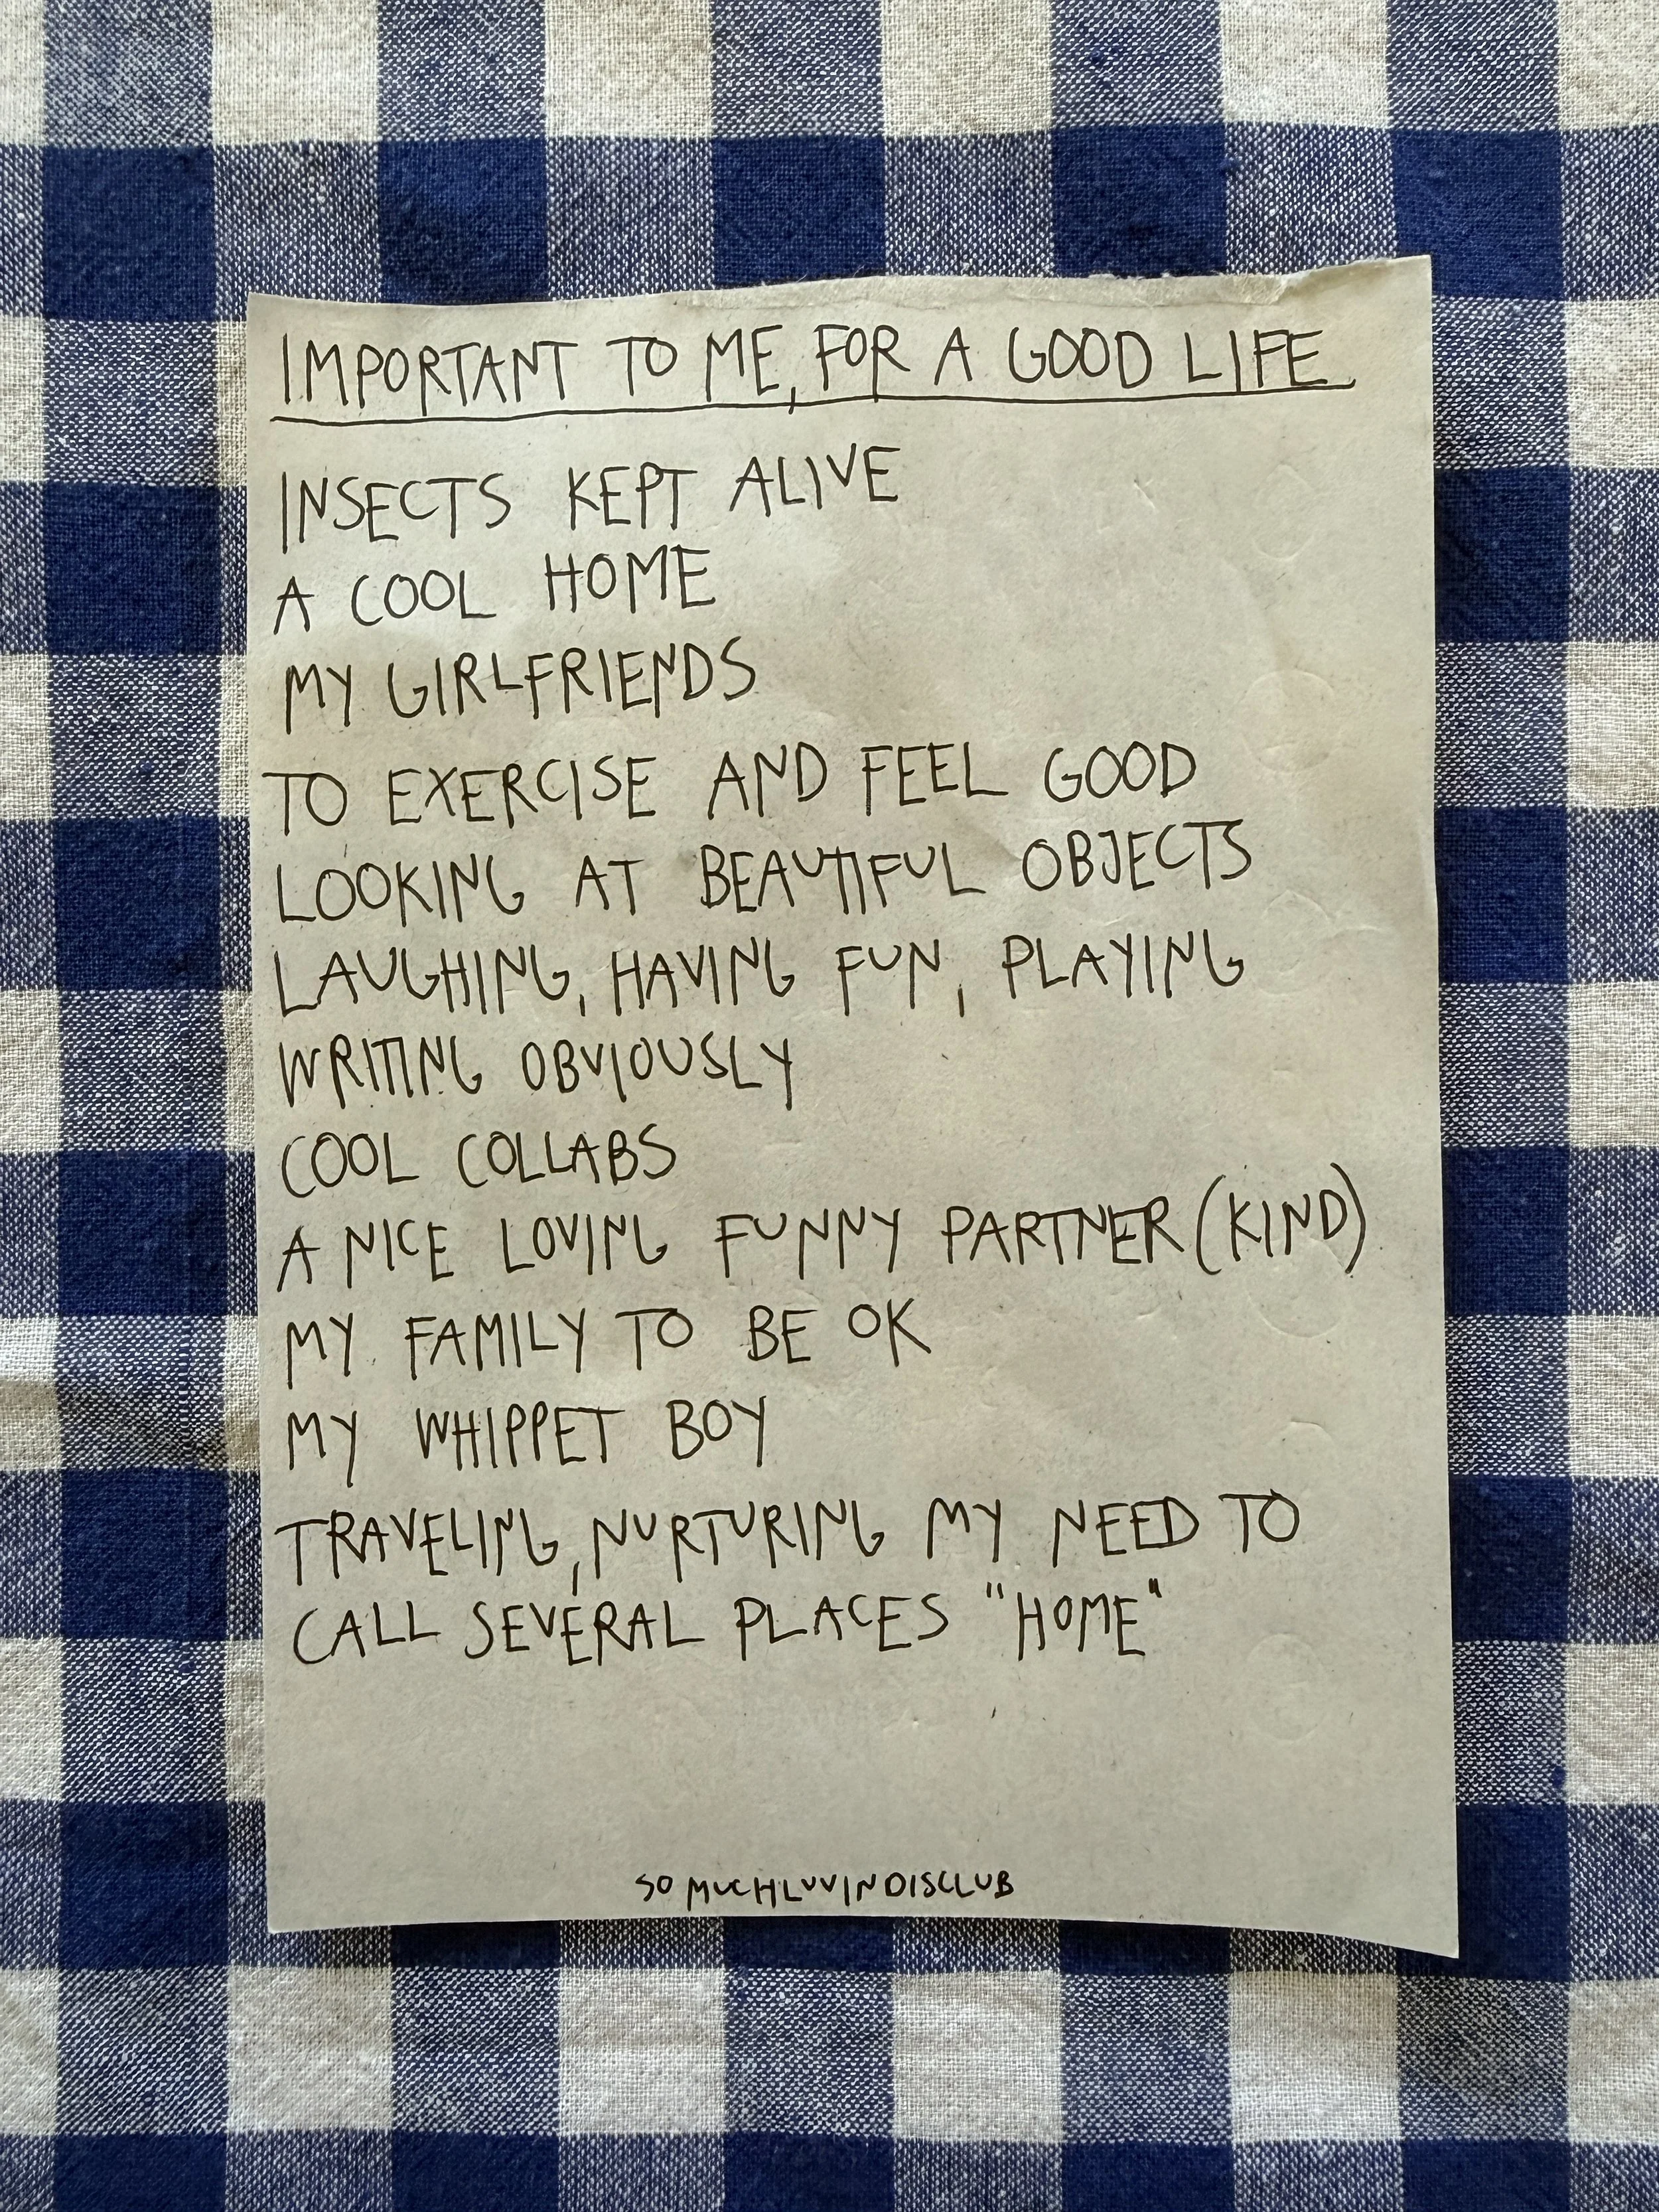 IMPORTANT TO ME, FOR A GOOD LIFE
INSECTS KEPT ALIVE
A COOL HOME
MY GIRLFRIENDS
TO EXERCISE AND FEEL GOOD
LOOKING AT BEAUTIFUL OBJECTS
LAUGHING, HAVING FUN, PLAYING
WRITING OBVIOUSLY
COOL COLLABS
A NICE LOVING FUNNY PARTNER (KIND)
MY FAMILY TO BE OK
MY WHIPPET BOY
TRAVELING, NURTURING MY NEED TO
CALL SEVERAL PLACES "HOME"
SOMUCHLUVINDISCLUB